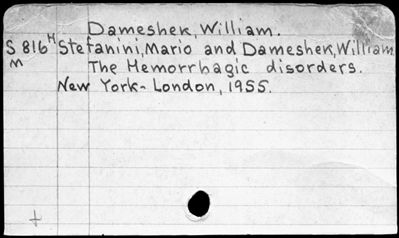 Dameshek, William.
S 816 H Stefanini, Mario and Dameshek, William
m The Hemorrhagic disorders.
New York- London, 1955.